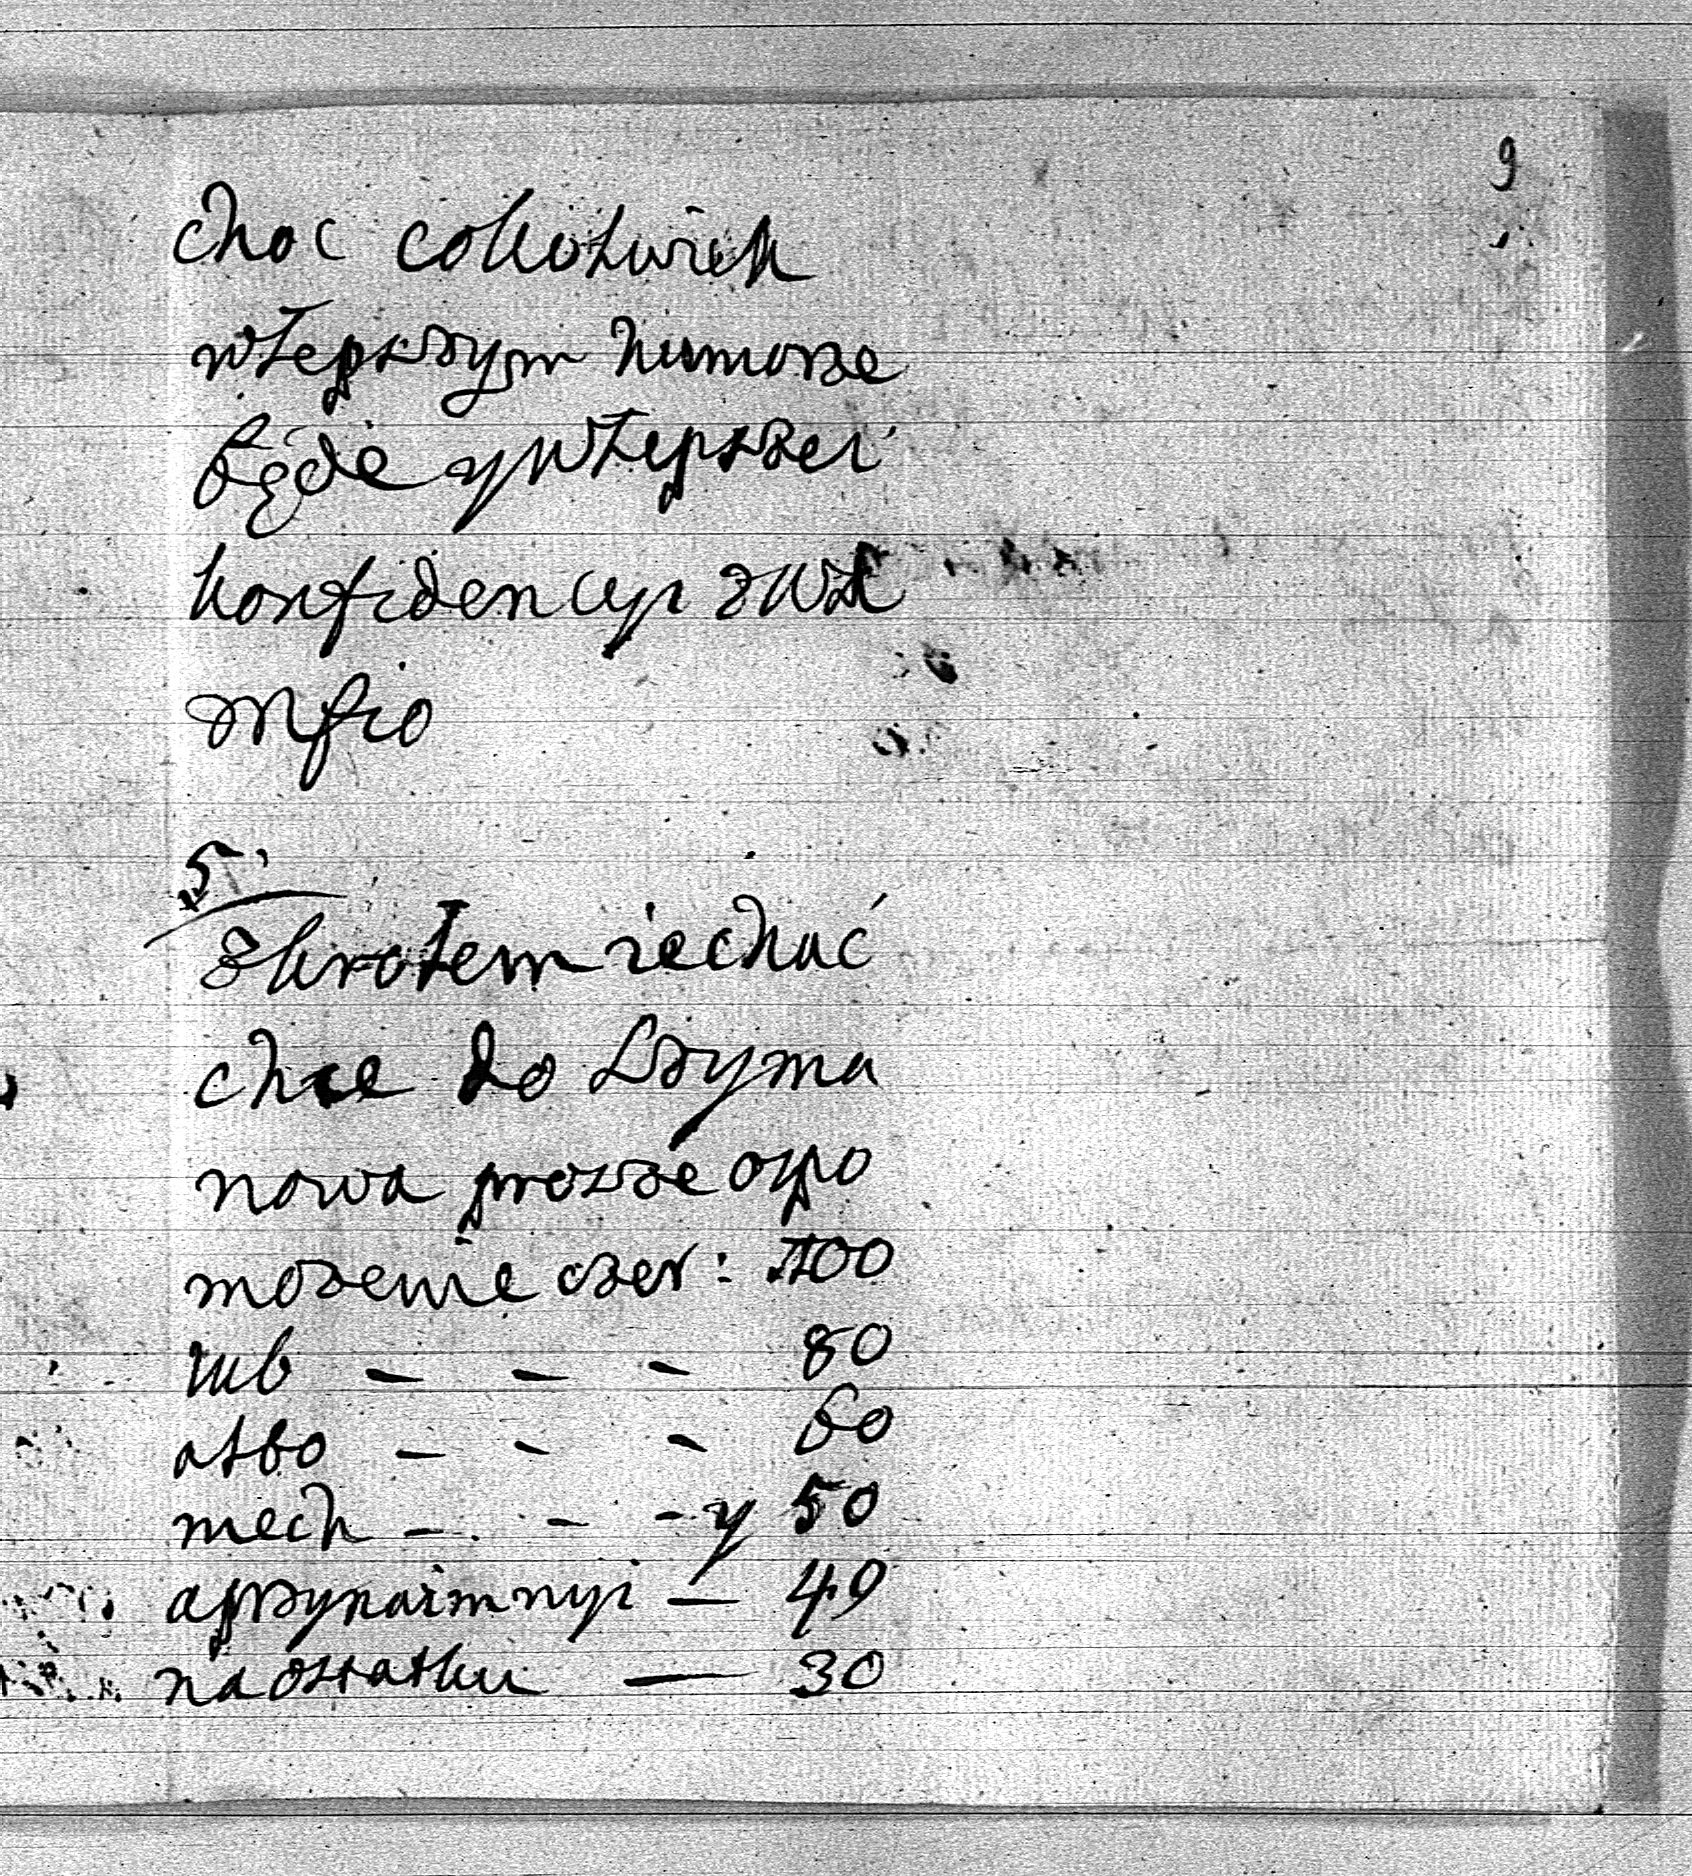 9
choc cokolwiek
wlepszym humorze
będe ywlepszei
konfidencyi zWX
Mścio
5
zkrolem iechać
chce do Szyma
nowa prosze ospo
mozenie czer: 100
lub – – – 80
albo – – – 60
niech – – – y 50
aprzynaimnyi — 40
naostatku — 30